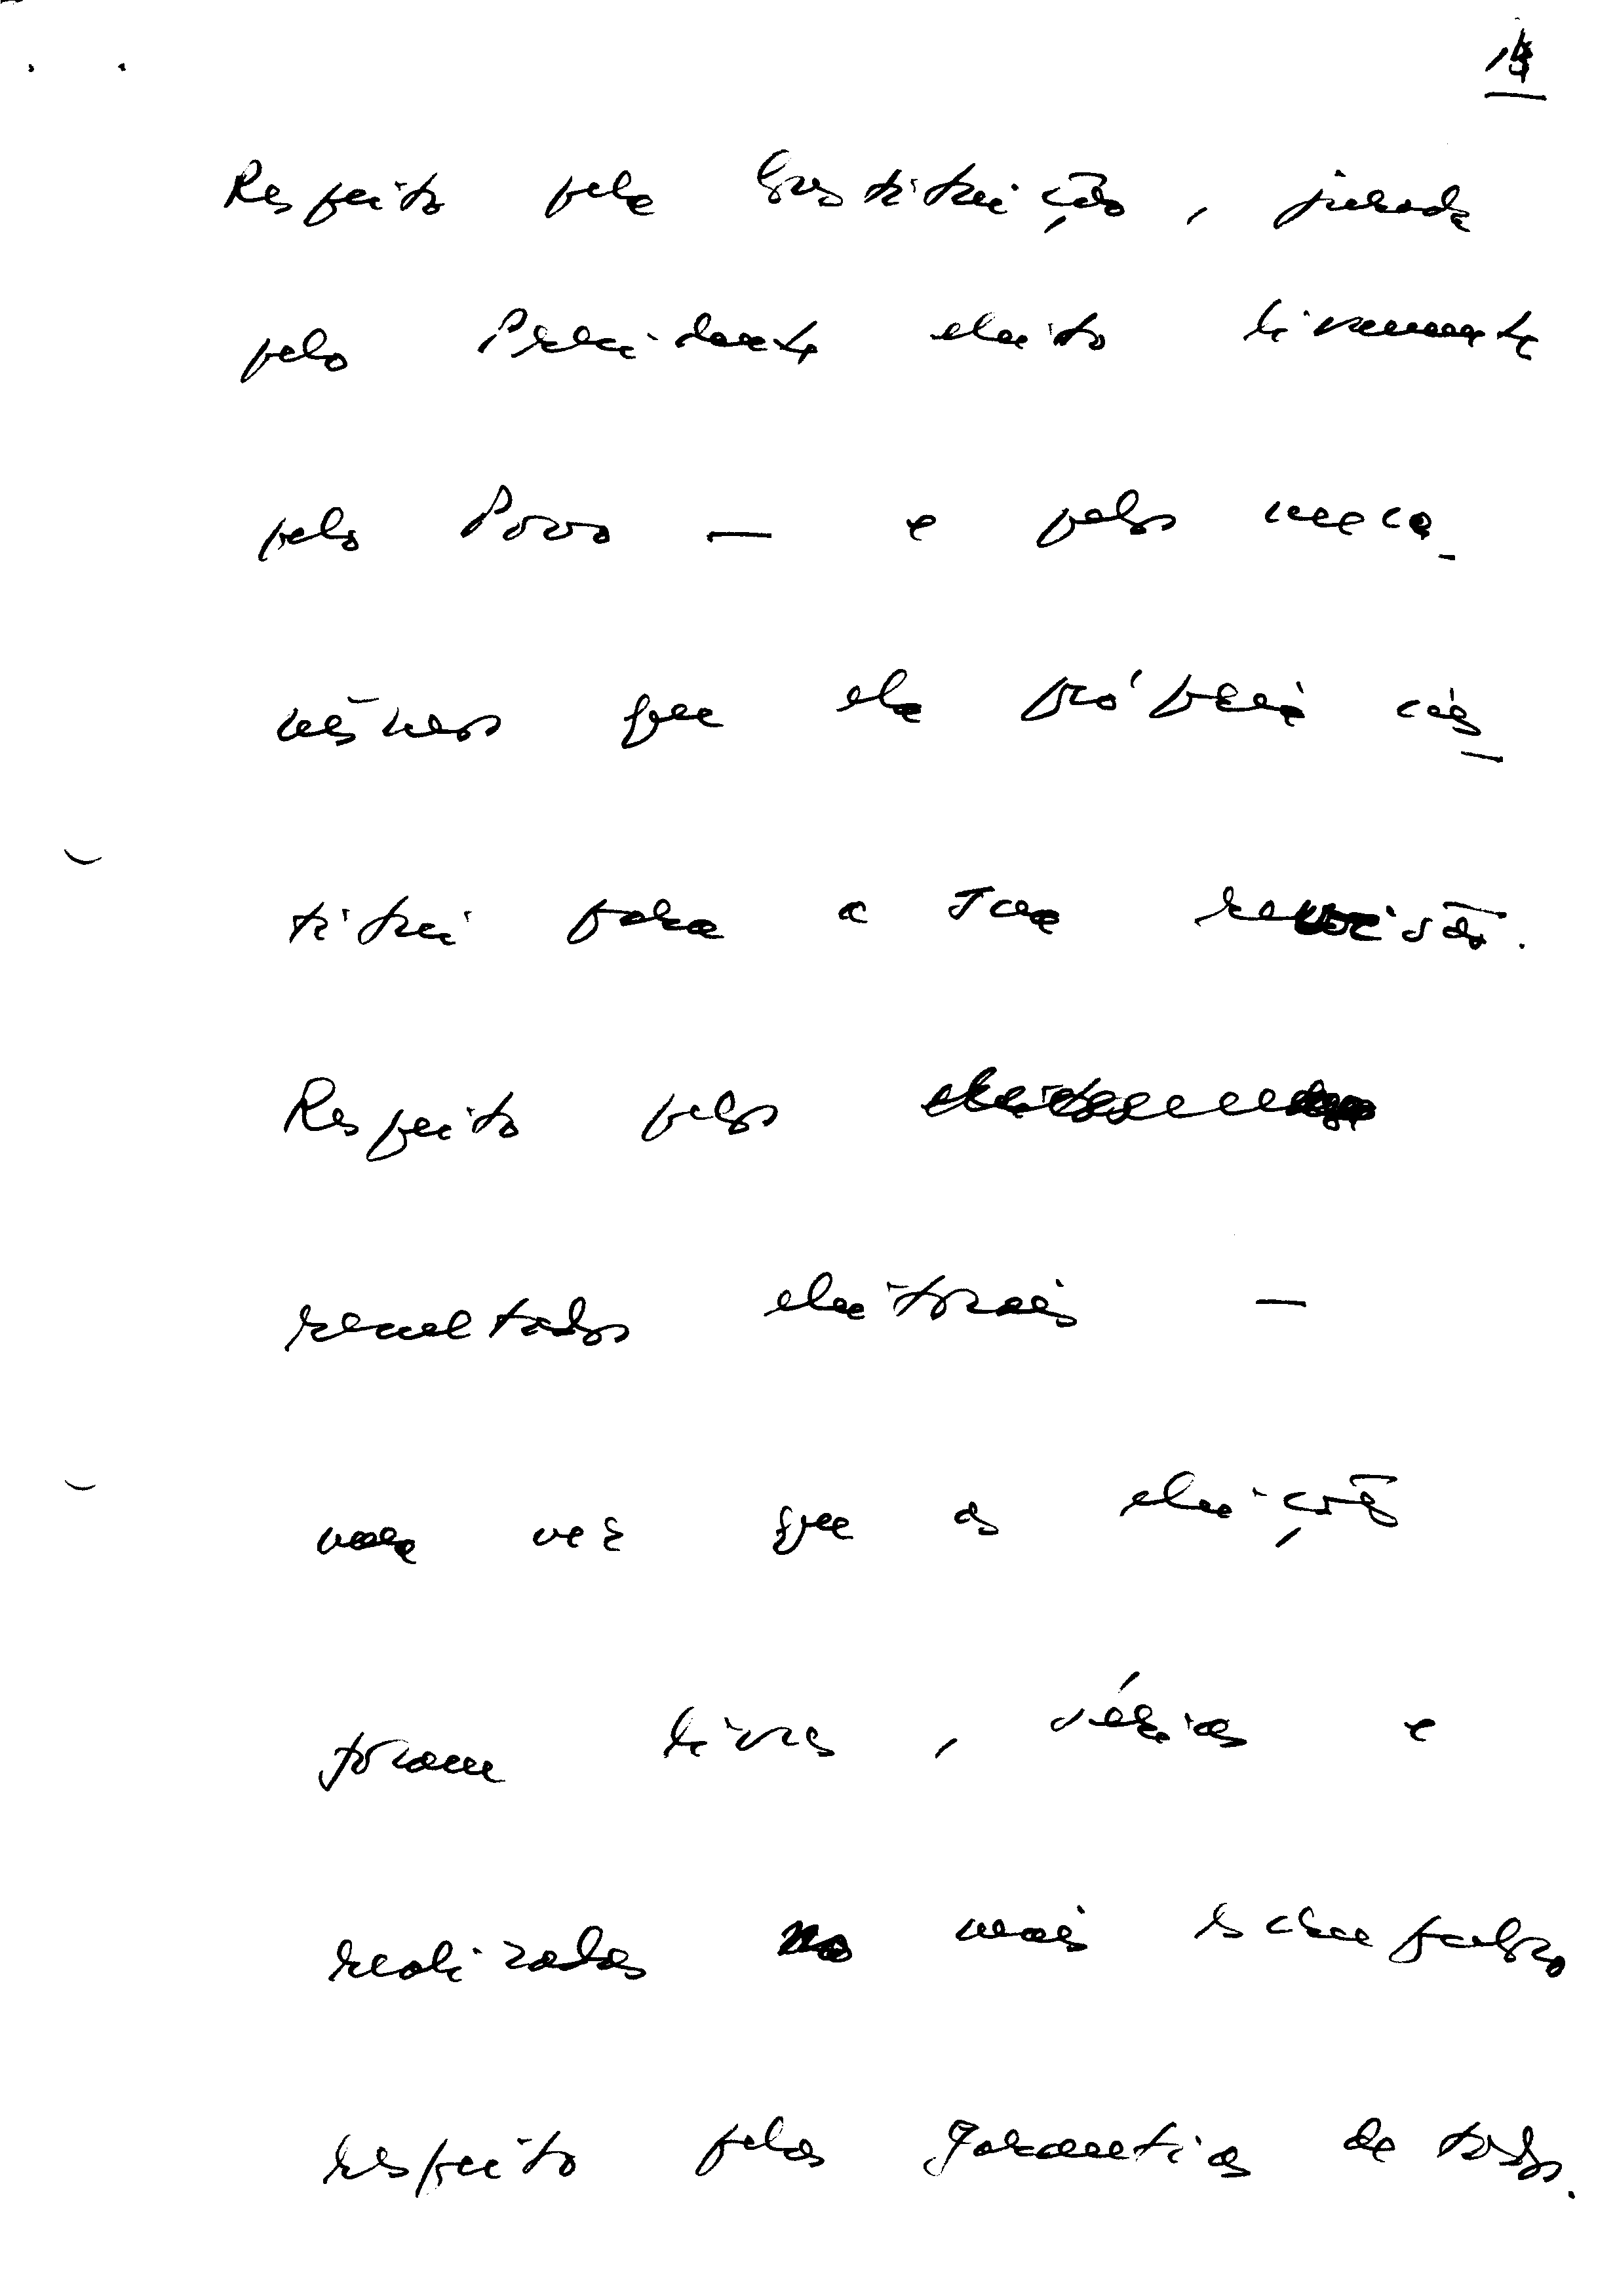 14
Respeito pela Constituição, jurada
pelo Presidente eleito livremente
pelo Povo — e pelos meca-
nismos que ela própria ins-
titui para a sua revisão.
Respeito pelos
resultados eleitorais —
uma vez que as eleições
foram livres, sérias e
realizadas no mais escrupuloso
respeito pelas garantias de todos.